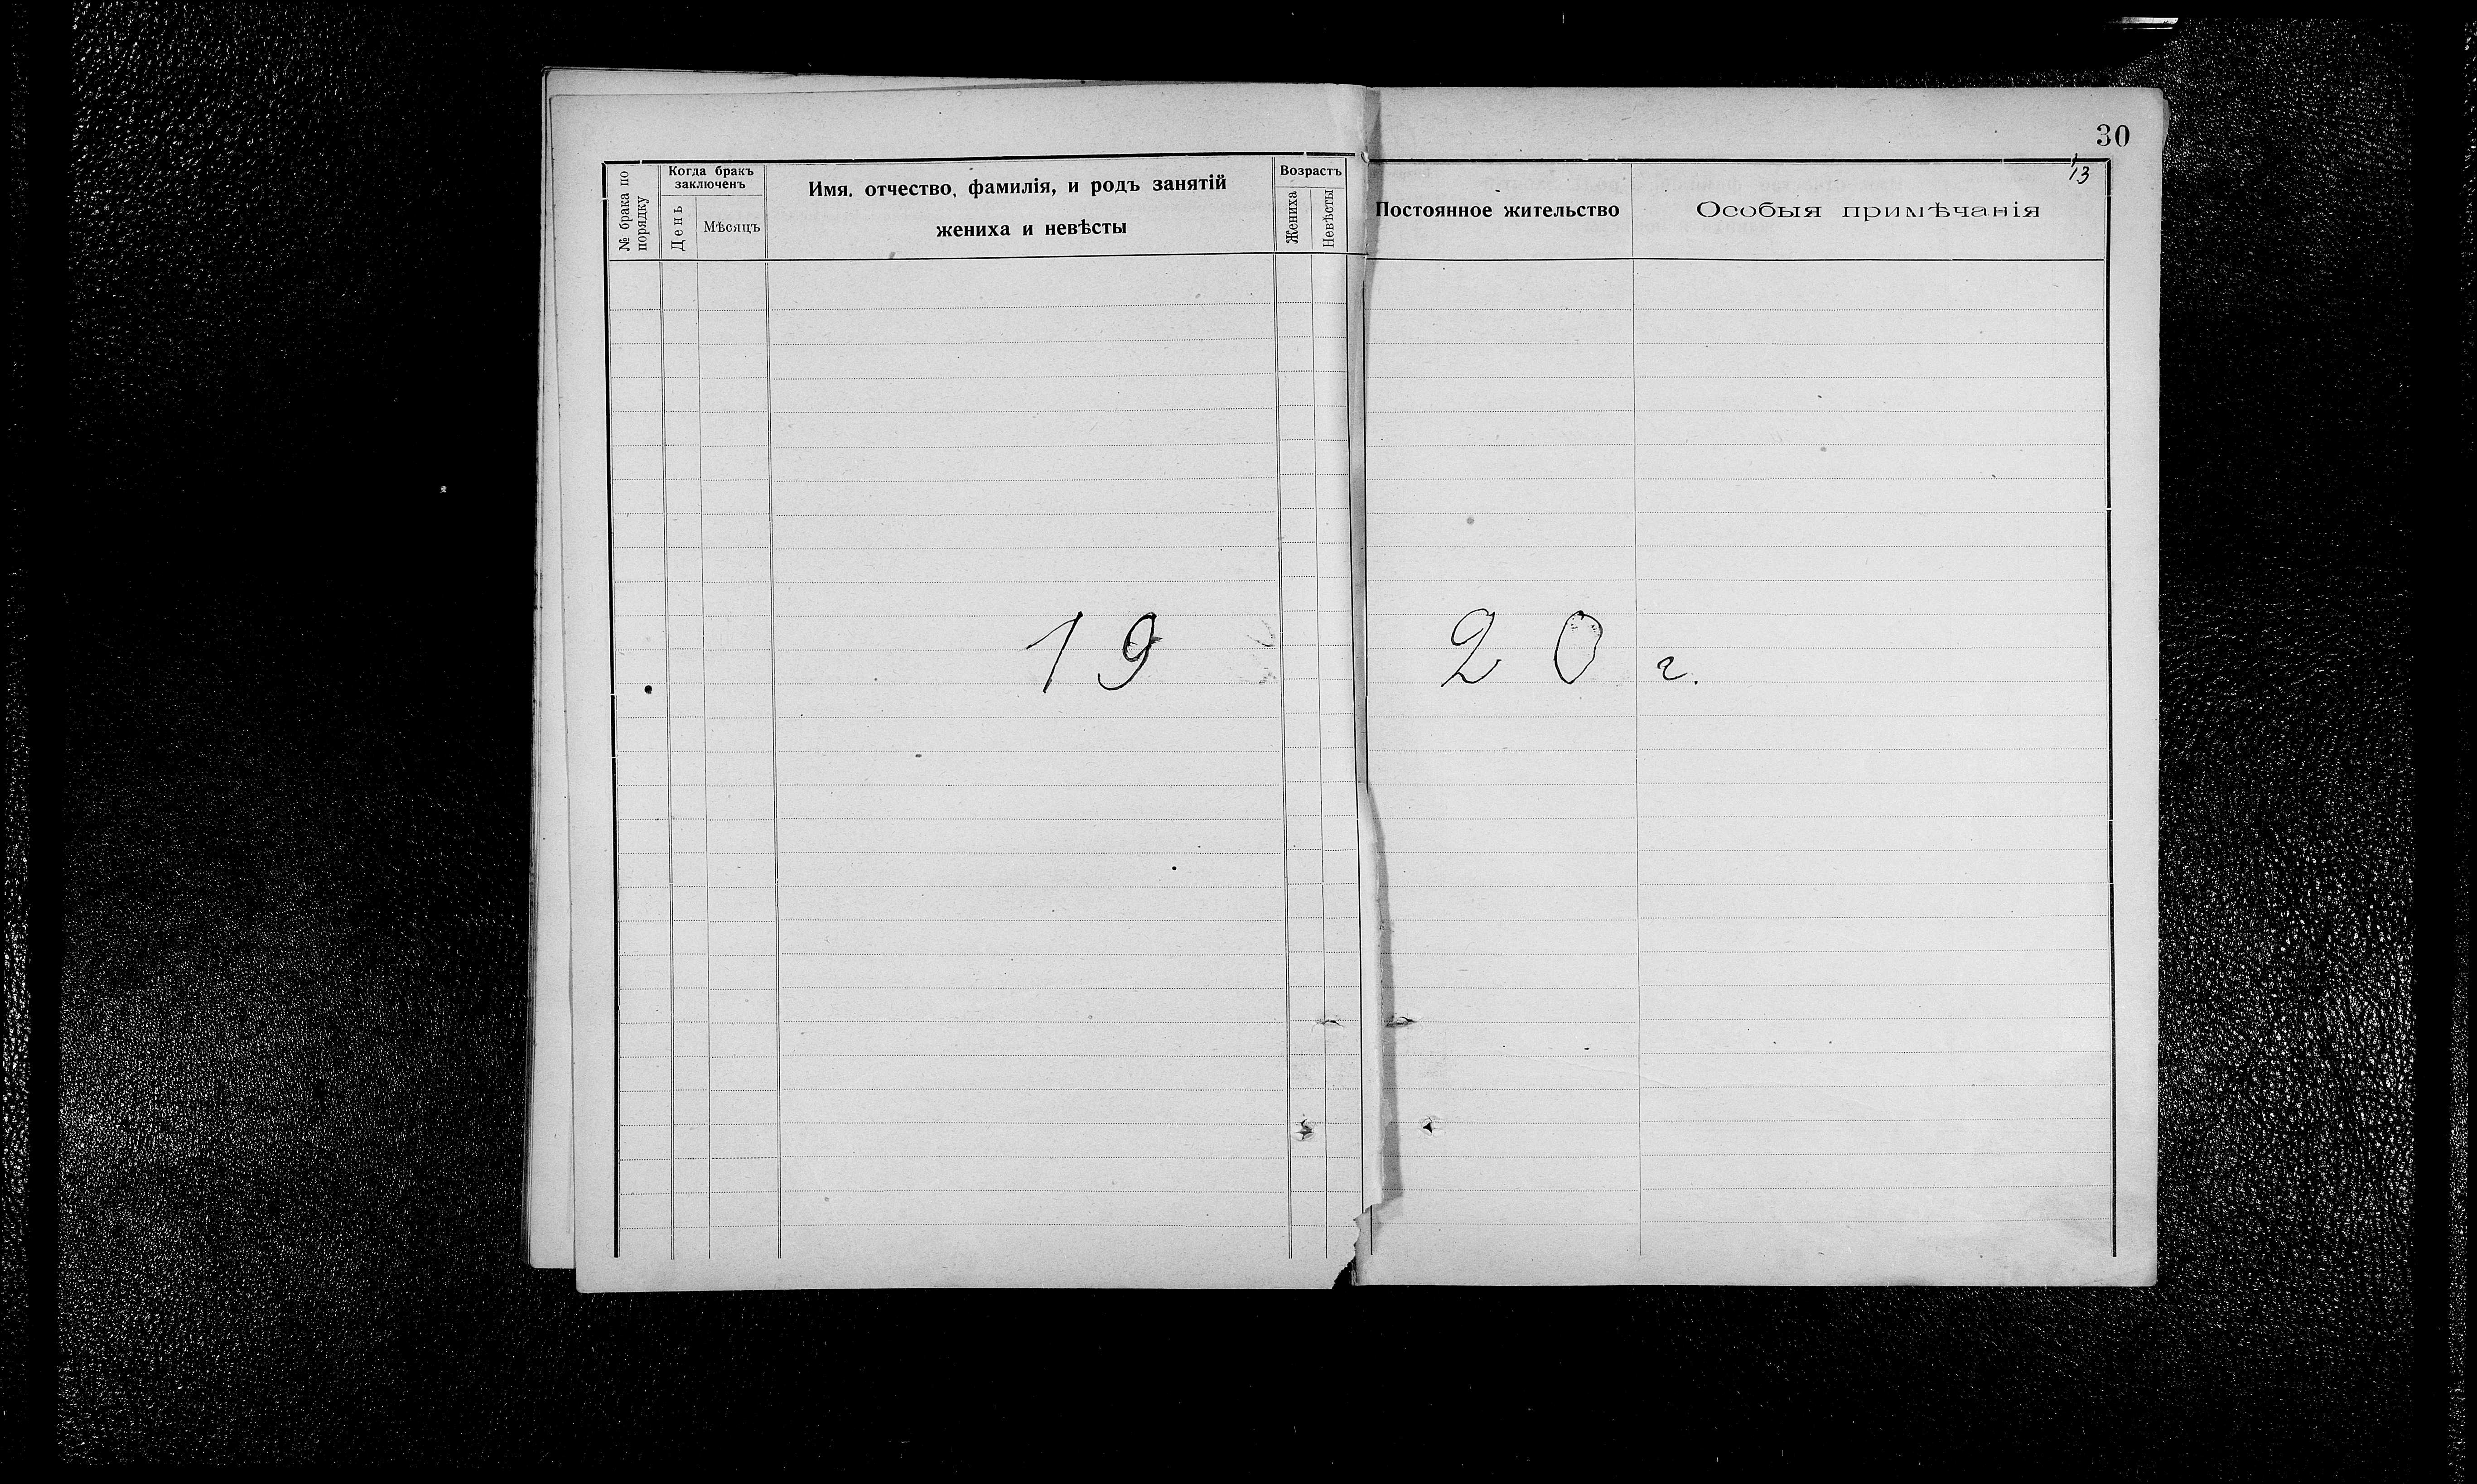 30
13
№ брака по порядку
Когда бракъ заключенъ
День
Мѣсяцъ
Имя, отчество, фамилія, и родъ занятій
жениха и невѣсты
Возрастъ
Жениха
Невѣсты
Постоянное жительство
Особыя примѣчанія
19 20 г.